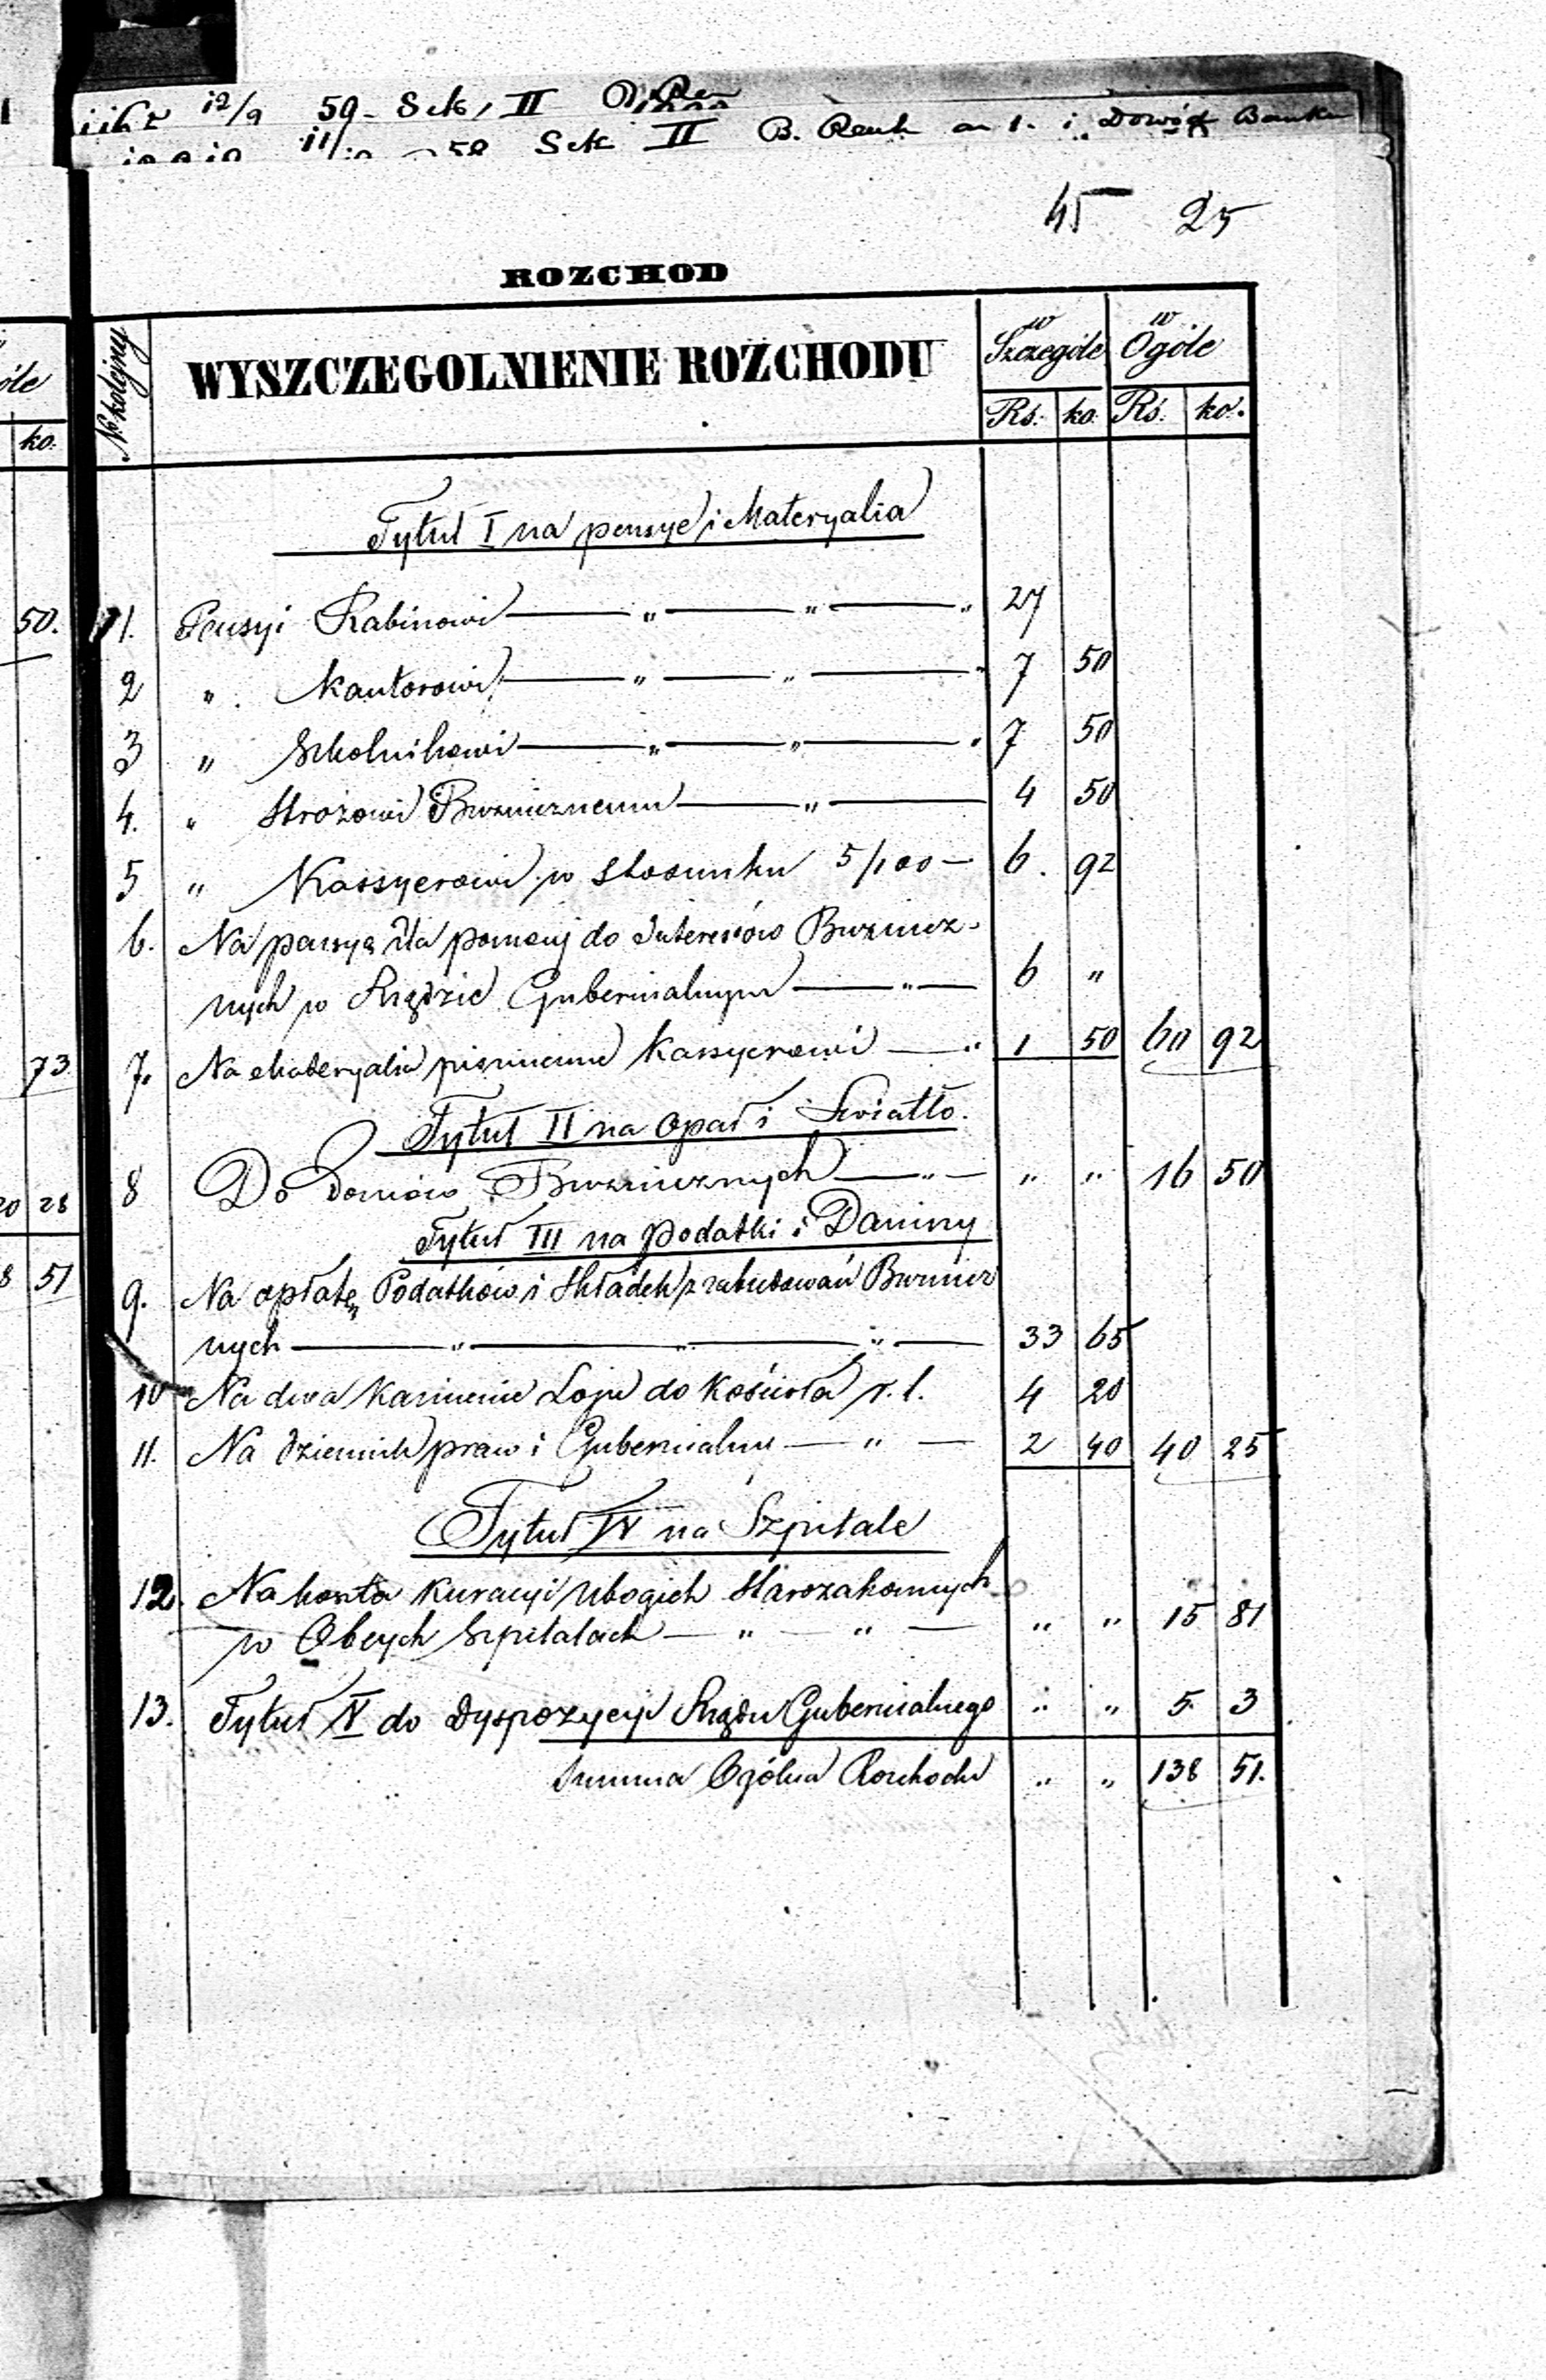 12/9 59 - Sek, II
11/10 58 Sek II B. Rent an 1. i „Dowód Banku
45 25
ROZCHOD
No kolejny
WYSZCZEGOLNIENIE ROZCHODU
w Szczególe w Ogóle
Rs. ko. Rs. ko.
óle
ko.
Tytuł I na pensye i Materyalia
50.
1. Pensyi Rabinowi — „ — „ — „ 27
2 „ Kantorowi — „ — „ — „ 7 50
3 „ Szkolnikowi — „ — „ — „ 7 50
4. „ Stróżowi Bużnicznemu — „ — 4 50
5 „ Kassyerowi w stosunku 5/100 — 6. 92
6. Na pensyą dla pomocy do Interesów Bużnicz-
nych w Rządzie Gubernialnym — „ — 6 „
73
7. Na Materyalia piśmienne Kassyerowi — „ 1 50 60 92
Tytuł II na Opał i Swiatło.
8 Do Domów Bużnicznych — „ — „ „ 16 50
20 28
Tytuł III na Podatki i Daniny
8 51
9. Na opłatę Podatków i Składek z zabudowań Bużnicz
nych — „ — „ — „ — 33 65
10 Na dwa Kamienie Łoju do Kościoła r. l. 4 20
11. Na dziennik praw i Gubernialny — „ — 2 40 40 25
Tytuł IV na Szpitale
12. Na koszta Kuracyi Ubogich Starozakonnych
w Obcych Szpitalach — „ — „ — „ „ 15 81
13. Tytuł V do Dyspozycyi Rządu Gubernialnego „ „ 5 3
Summa Ogólna Rozchodu „ „ 138 51.